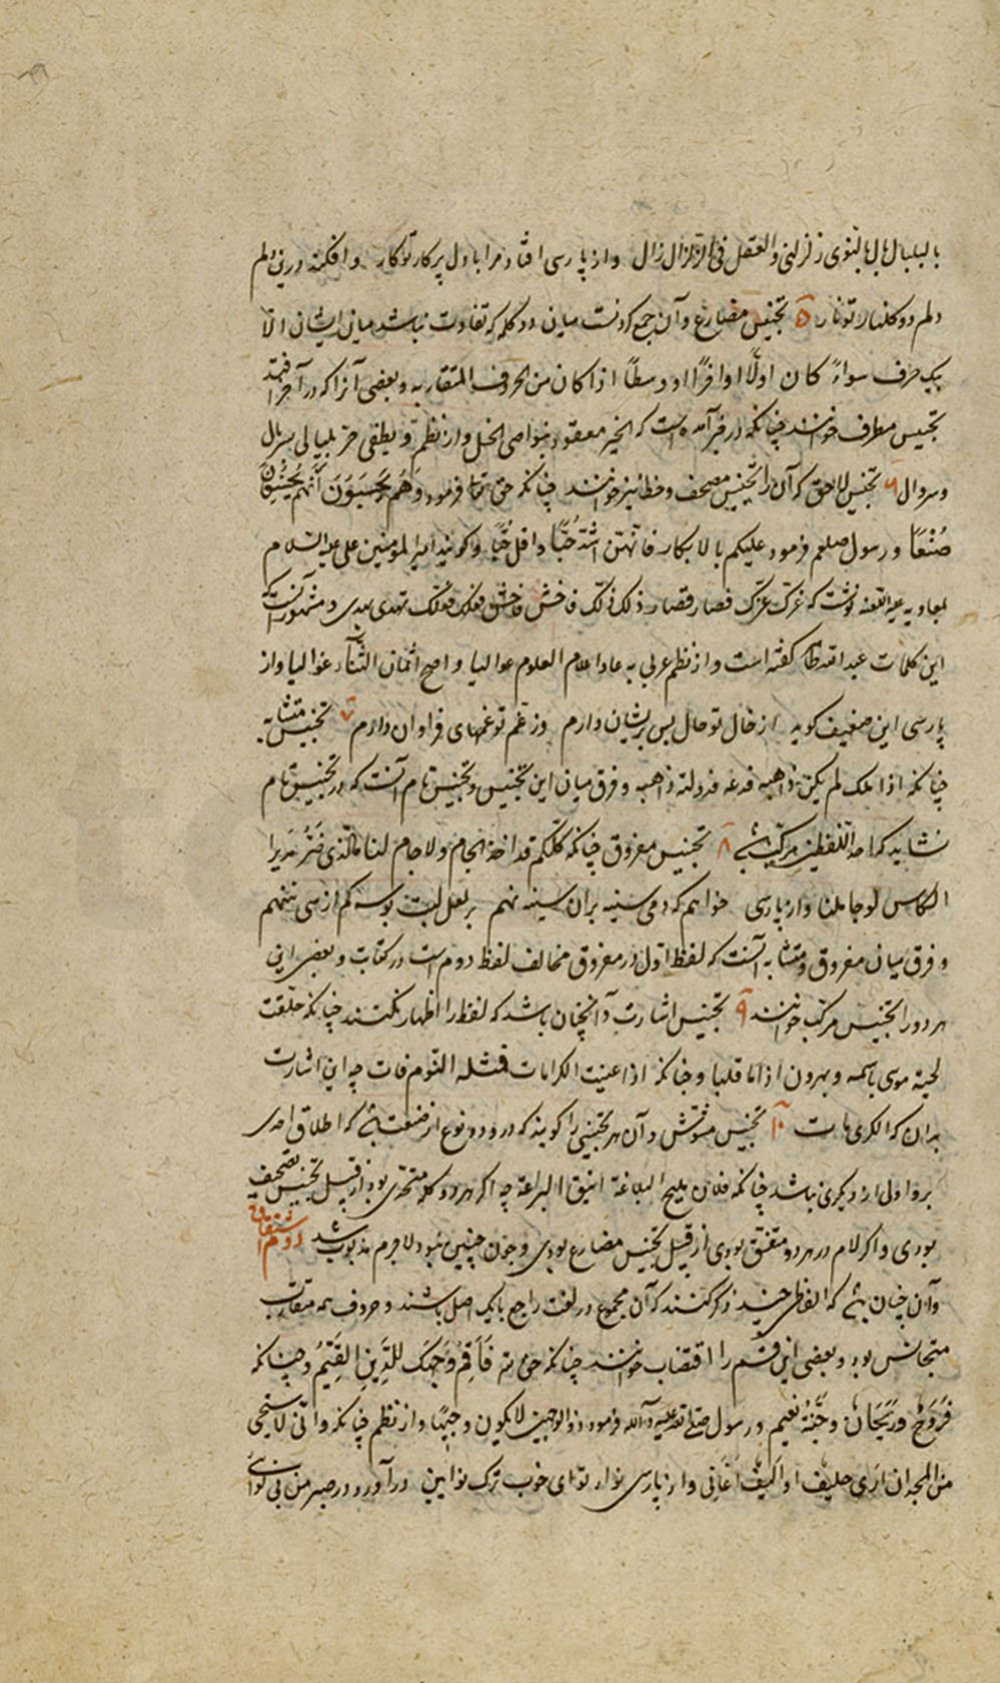 بالبلبال بال بالنوی زلزلنی والعقل فی الزلزال زال واز پارسی افتاد مرا با دل پرکار تو کار وافکند درین دلم
دلم دو کلنار تو نار ۵ تجنیس مضارع وآن جمع کردنست میان دو کلمه که تفاوت نباشد میان ایشان الا
بیک حرف سواء کان اولًا او اخرًا او وسطًا اذا کان من الحروف المتقاربه وبعضی آنرا که در آخر افتد
تجنیس مطرف خوانند چنانکه در خبر آمده است که الخیر معقود بنواصی الخیل واز نظم ویطفی حر بلبالی بسربال
وسروال ۶ تجنیس لاحق که آن را تجنیس مصحف وخط نیز خوانند چنانکه حق تعالی فرمود وَهُم یَحْسَبُونَ أَنَّهُم یُحْسِنُونَ
صُنْعًا ورسول صلعم فرمود علیکم بالابکار فانهن اشد حبًا واقل خبًا وکویند امیر المومنین علی علیه السلام
بمعاویه علیه اللعنه نوشت که غرک عزک فصار قصار ذلک ذلک فاخش فاحش فعلک فعلک تهدی بهدی ومشهور آنست که
این کلمات عبد الله طاهر کفته است واز نظم عربی به عاد اعلام العلوم عوالیا واضح اثمان الثناء غوالیا واز
پارسی این ضعیف کوید از خال تو حال بس پریشان دارم وز غم تو غمهای فراوان دارم ۷ تجنیس متشابه
چنانکه اذا ملک لم یکن ذا هبه فدعه فدولته ذاهبه وفرق میان این تجنیس وتجنیس تام آنست که در تجنیس تام
نشاید که احد اللفظین مرکب باشد ۸ تجنیس مفروق چنانکه کلکم قد اخذ الجام ولا جام لنا ما الذی ضر مدیر
الکاس لو جاملنا واز پارسی خواهم که دمی سینه بران سینه نهم بر لعل لبت بوسه کم از سی ننهم
وفرق میان مفروق ومتشابه آنست که لفظ اول در مفروق مخالف لفظ دوم است در کتابت وبعضی این
هر دو را تجنیس مرکب خوانند ۹ تجنیس اشارت وآنچنان باشد که لفظ را اظهار نکنند چنانکه حلقت
لحیة موسی باسمه وبهرون اذا ما قلبا وچنانکه اذا عنیت الکرامات فمثله النوم فات چه این اشارت
بدان که الکری مات ۱۰ تجنیس مشوش وآن هر تجنیسی را کویند که درو دو نوع از صنعت باشد که اطلاق احدی
برو اولی از دیکری نباشد چنانکه فلان ملیح البلاغة انیق البراعة چه اکر هر دو کلمه متحدی بود از قبیل تجنیس تصحیف
بودی واکر لام در هر دو متفق بودی از قبیل تجنیس مضارع بودی وچون چنین نبود لاجرم مذبوب شد دوم اشتقاق
وآن چنان باشد که الفاظی چند ذکر کنند که آن مجموع در لغت راجع بایک اصل باشند وحروف همه متقارب
متجانس بود وبعضی این قسم را اقتضاب خوانند چنانکه حق تعالی فَاَقِمْ وَجْهَکَ لِلدِّینِ القَیِّمِ وچنانکه
فَرَوْحٌ ورَیْحَانٌ وجَنَّةُ نَعِیمٍ ورسول صلی الله علیه وآله فرمود ذو الوجهین لا یکون وجیهًا واز نظم چنانکه وانی لاستحیی
من المجد ان اری حلیف او الیف اغانی واز پارسی نوای خوب ترک نوایین درآورد در صبر من بی نوای